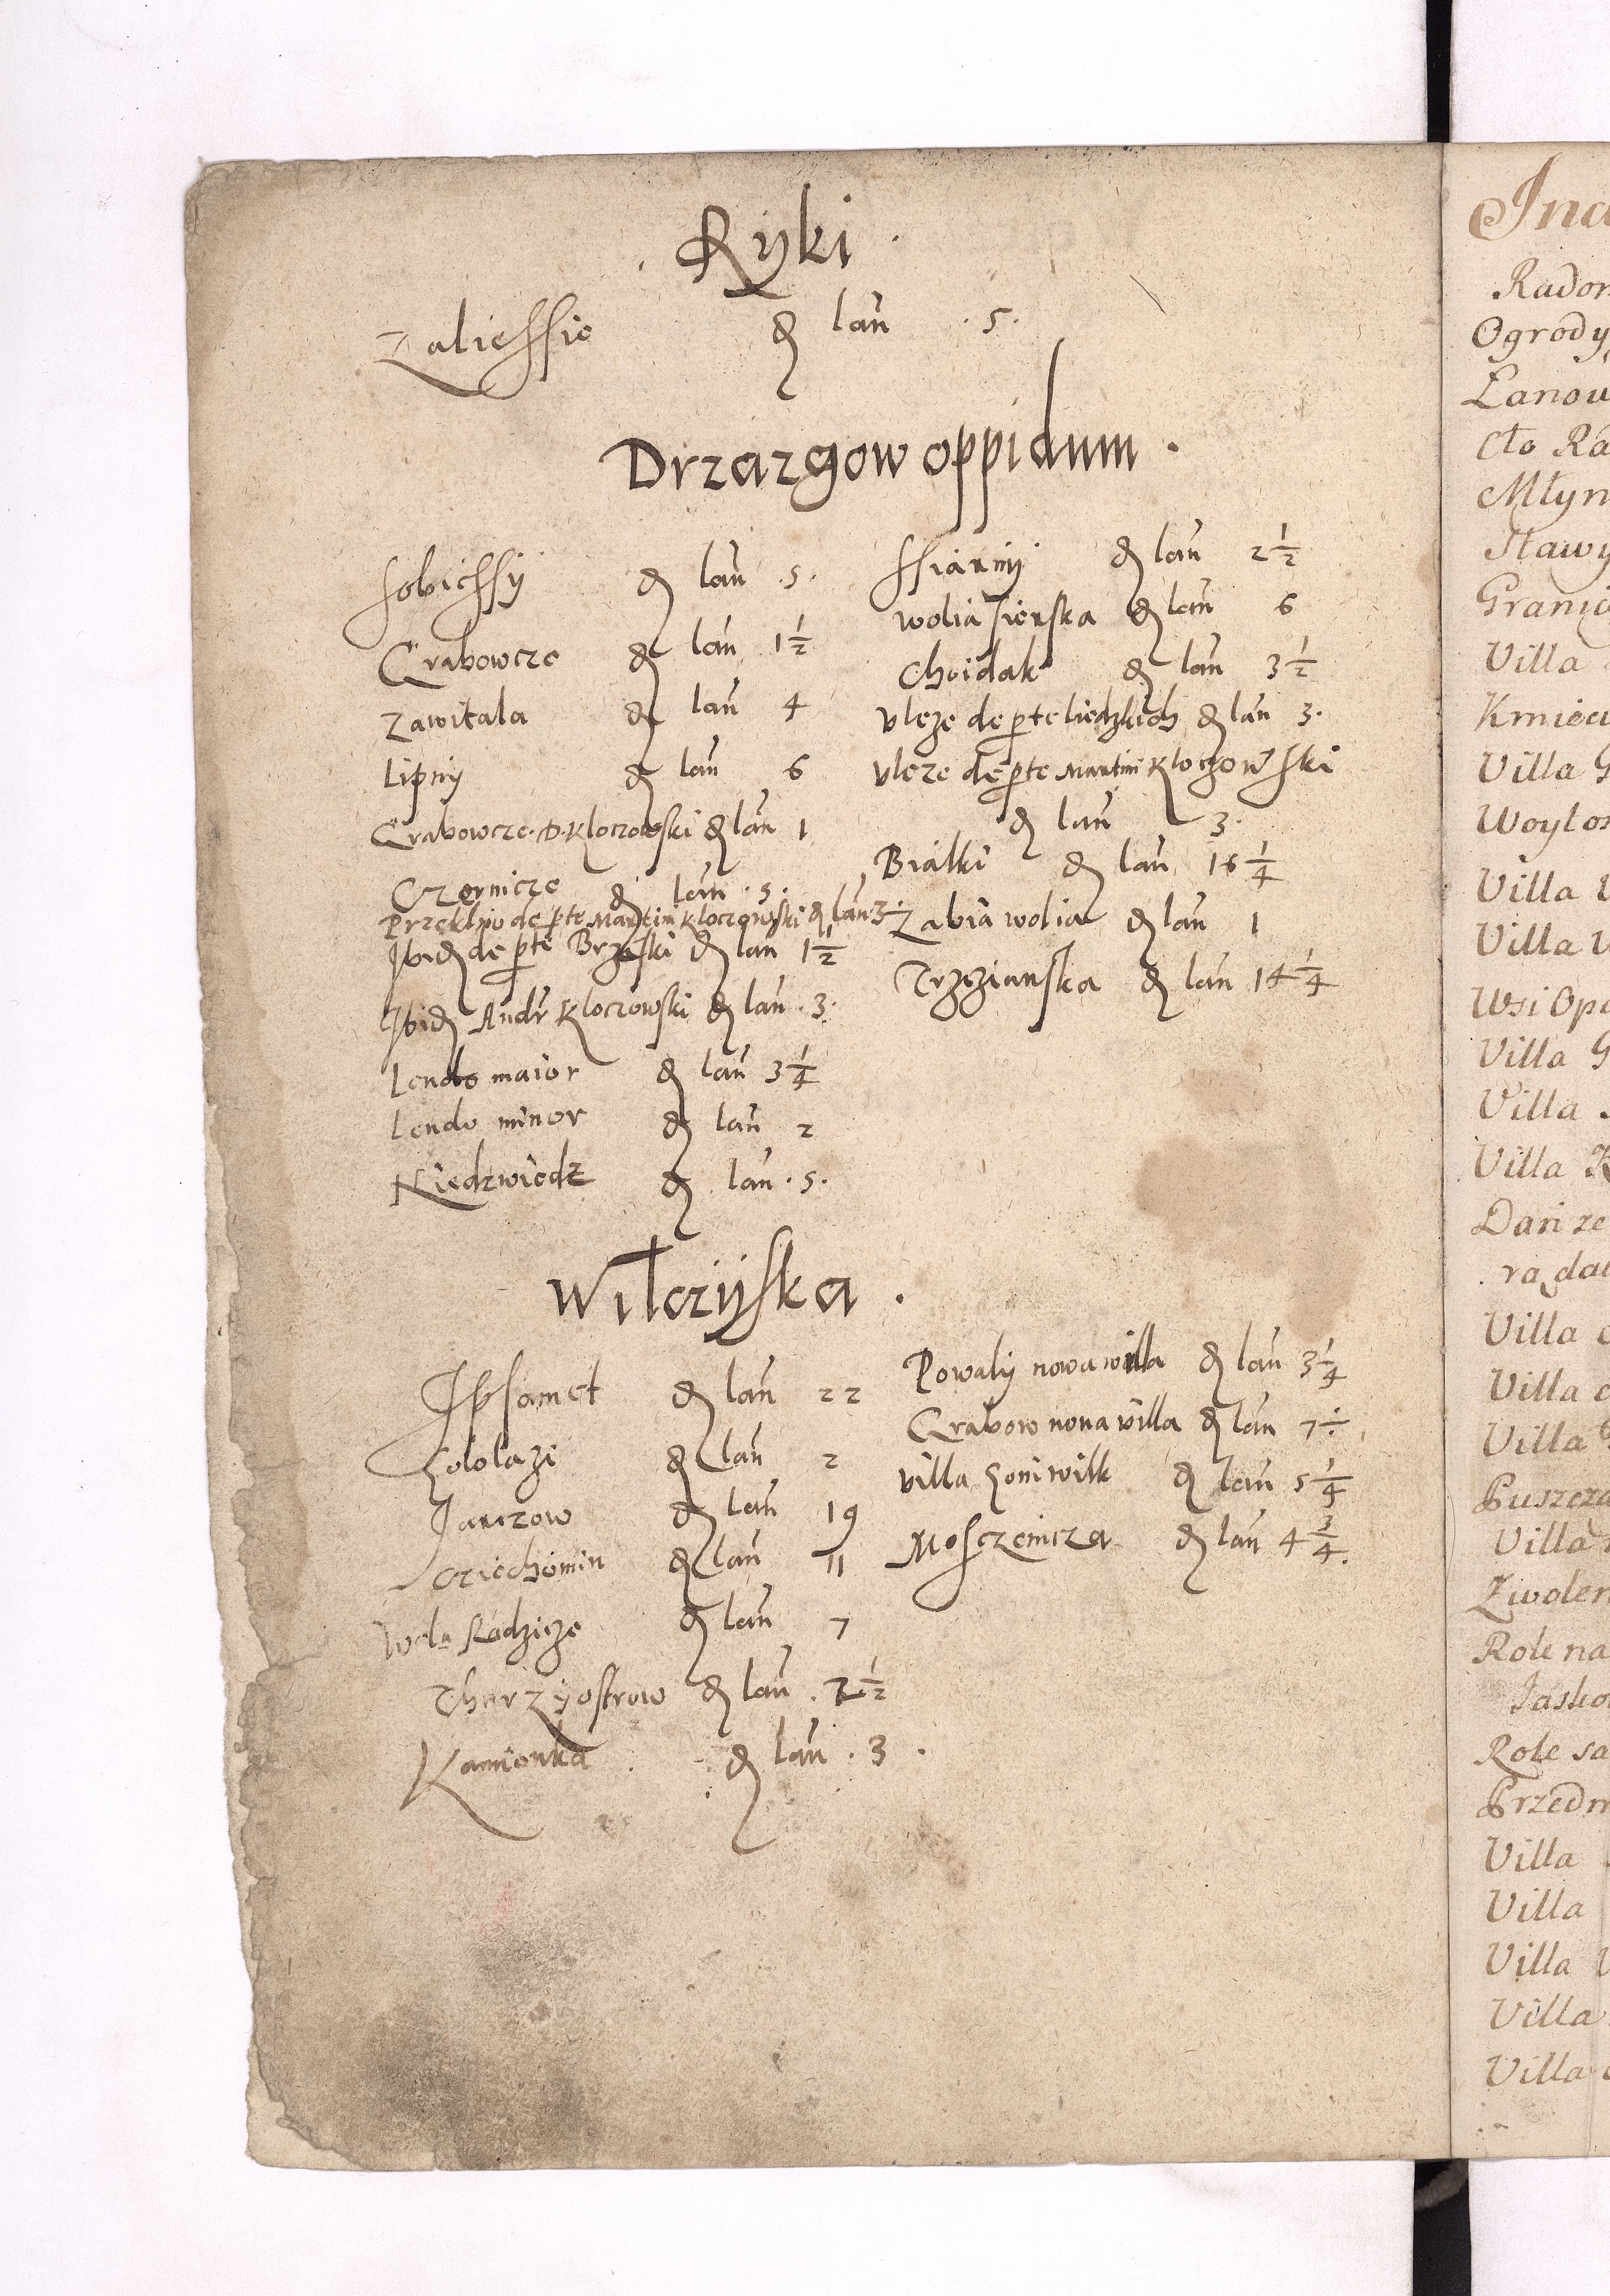 Ryki.
Zaliessie de lan 5.
Drzazgow oppidum.
Sobiessy de lan .5.
Grabowcze de lan 1 1/2
Zawitala de lan 4
Lipiny de lan 6
Grabowcze D. Kloczowski de lan 1
Czernicze de lan .5.
de pte Martini Kloczowski de lan 3.
Ibid de pte Brzeski de lan 1 1/2
Ibid Andr Kloczowski de lan .3.
Lendo maior de lan 3 1/4
Lendo minor de lan 2
Niedzwiedz de lan .5.
ssiarny de lan 2 1/2
wolia sierska de lan 6
Choidak de lan 3 1/2
Uleze de pte liedzkich de lan 3.
Uleze de pte Martini Kloczowski
de lan 3.
Bialki de lan 16 1/4
Zabia wolia de lan 1
Trzczianska de lan 14 1/4
Wilczyska.
Ipsamet de lan 22
de lan 2
Jarczow de lan 19
Cziechomin de lan 11
Wola Radzicze de lan 7
Charzyostrow de lan
Kamionka de lan .3.
Powaly nowa willa de lan 3 1/4
Grabow nona willa de lan 7
villa Goniwilk de lan 5 1/4
Mosczenicza de lan 4 3/4.
Radom
Ogrody
Łanow
Cło Ra
Młyn
Stawy
Granic
Villa
Kmiec
Villa G
Woytos
Villa
Villa
Wsi Opa
Villa G
Villa
Villa K
Dani ze
Villa
Villa
Villa
Puszcza
Villa
Zwolen
Role na
Jasko
Role sa
Przedm
Villa
Villa
Villa
Villa
Villa